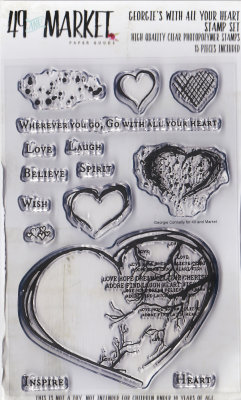 49 AND MARKET
PAPER GOODS
GEORGIE'S WITH ALL YOUR HEART
STAMP SET
HIGH QUALITY CLEAR PHOTOPOLYMER STAMPS
15 PIECES INCLUDED
WHEREVER YOU GO, GO WITH ALL YOUR HEART
LOVE
LAUGH
BELIEVE
SPIRIT
WISH
Georgie Connolly for 49 and Market
INSPIRE
HEART
THIS IS NOT A TOY. NOT INTENDED FOR CHILDREN UNDER 10 YEARS OF AGE.